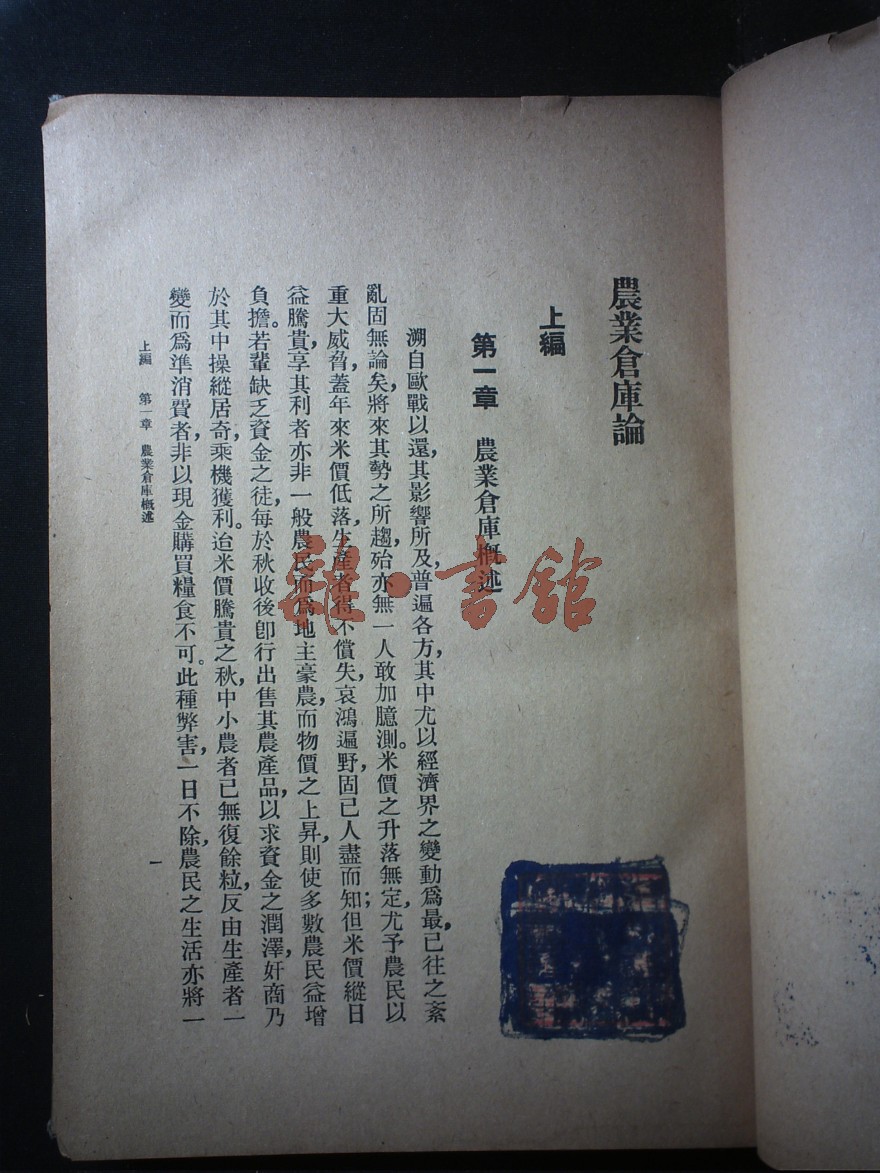 農業倉庫論
上編
第一章　農業倉庫概述
溯自歐戰以還，其影響所及，普遍各方，其中尤以經濟界之變動爲最，已往之紊
亂固無論矣，將來其勢之所趨，殆亦無一人敢加臆測。米價之升落無定，尤予農民以
重大威脅，蓋年來米價低落，生產者得不償失，哀鴻遍野，固已人盡而知；但米價縱日
益騰貴，享其利者亦非一般農民，而爲地主豪農，而物價之上昇，則使多數農民益增
負擔。若輩缺乏資金之徒，每於秋收後卽行出售其農產品，以求資金之潤澤，奸商乃
於其中操縱居奇，乘機獲利。迨米價騰貴之秋，中小農者已無復餘粒，反由生產者一
變而爲準消費者，非以現金購買糧食不可。此種弊害，一日不除，農民之生活亦將一
上編　第一章　農業倉庫概述
一
書館